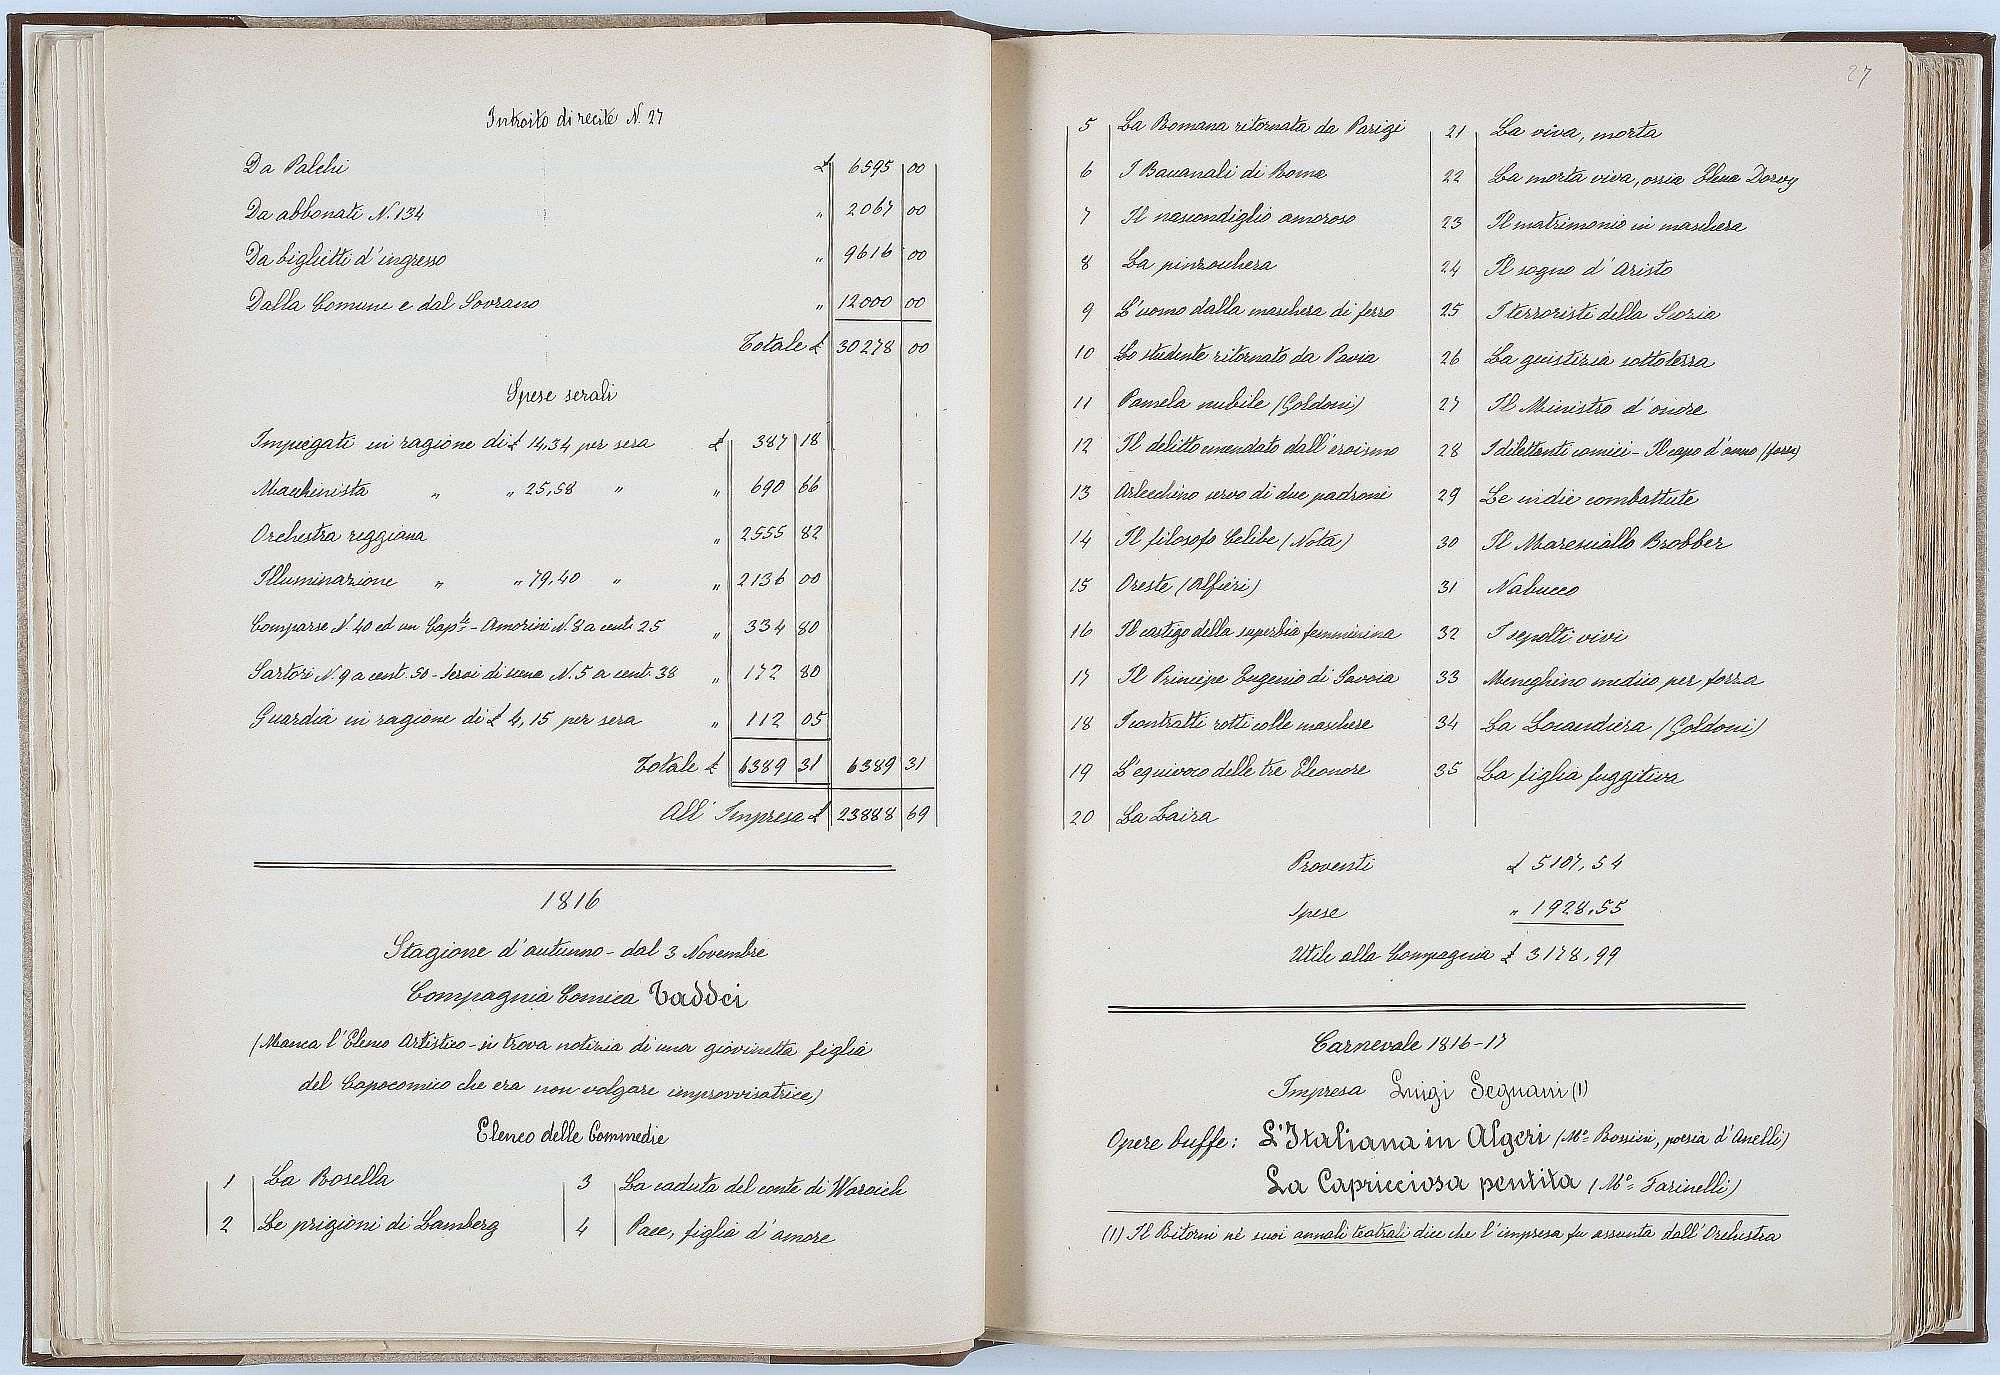 Introito di recite N. 27
Da Palchi £ 6595 00
Da abbonati N. 134 „ 2067 00
Da biglietti d'ingresso „ 9616 00
Dalla Comune e dal Sovrano „ 12000 00
Totale £ 30278 00
Spese serali
Impiegati in ragione di £ 14,34 per sera £ 387 18
Macchinista „ „ 25,58 „ „ 690 66
Orchestra reggiana „ 2555 82
Illuminazione „ „ 79,40 „ „ 2136 00
Comparse N. 40 ed un Cap.le - Amorini N. 8 a cent. 25 „ 334 80
Sartori N. 9 a cent. 50 - Servi di scena N. 5 a cent. 38 „ 172 80
Guardia in ragione di £ 4,15 per sera „ 112 05
Totale £ 6389 31 6389 31
All' Impresa £ 23888 69
1816
Stagione d'autunno - dal 3 Novembre
Compagnia Comica Taddei
(Manca l'Elenco Artistico - si trova notizia di una giovinetta figlia
del Capocomico che era non volgare improvvisatrice)
Elenco delle Commedie
1 La Rosella
2 Le prigioni di Lamberg
3 La caduta del conte di Warvich
4 Pace, figlia d'amore
27
5 La Romana ritornata da Parigi
6 I Baccanali di Roma
7 Il nascondiglio amoroso
8 La pinzochera
9 L'uomo dalla maschera di ferro
10 Lo studente ritornato da Pavia
11 Pamela nubile (Goldoni)
12 Il delitto emendato dall'eroismo
13 Arlecchino servo di due padroni
14 Il filosofo Celibe (Nota)
15 Oreste (Alfieri)
16 Il castigo della superbia femminina
17 Il Principe Eugenio di Savoia
18 I contratti rotti colle maschere
19 L'equivoco delle tre Eleonore
20 La Zaira
21 La viva, morta
22 La morta viva, ossia Elena Dorvy
23 Il matrimonio in maschera
24 Il sogno d'Aristo
25 I terroristi della Scozia
26 La giustizia sottoterra
27 Il Ministro d'onore
28 I dilettanti comici - Il capo d'anno (farse)
29 Le indie combattute
30 Il Maresciallo Brobber
31 Nabucco
32 I sepolti vivi
33 Meneghino medico per forza
34 La Locandiera (Goldoni)
35 La figlia fuggitiva
Proventi £ 5107,54
Spese „ 1928,55
Utile alla Compagnia £ 3178,99
Carnevale 1816-17
Impresa Luigi Segnani (1)
Opere buffe: L'Italiana in Algeri (Mo. Rossini, poesia d'Anelli)
La Capricciosa pentita (Mo. Farinelli)
(1) Il Ritorni ne' suoi annali teatrali dice che l'impresa fu assunta dall'Orchestra